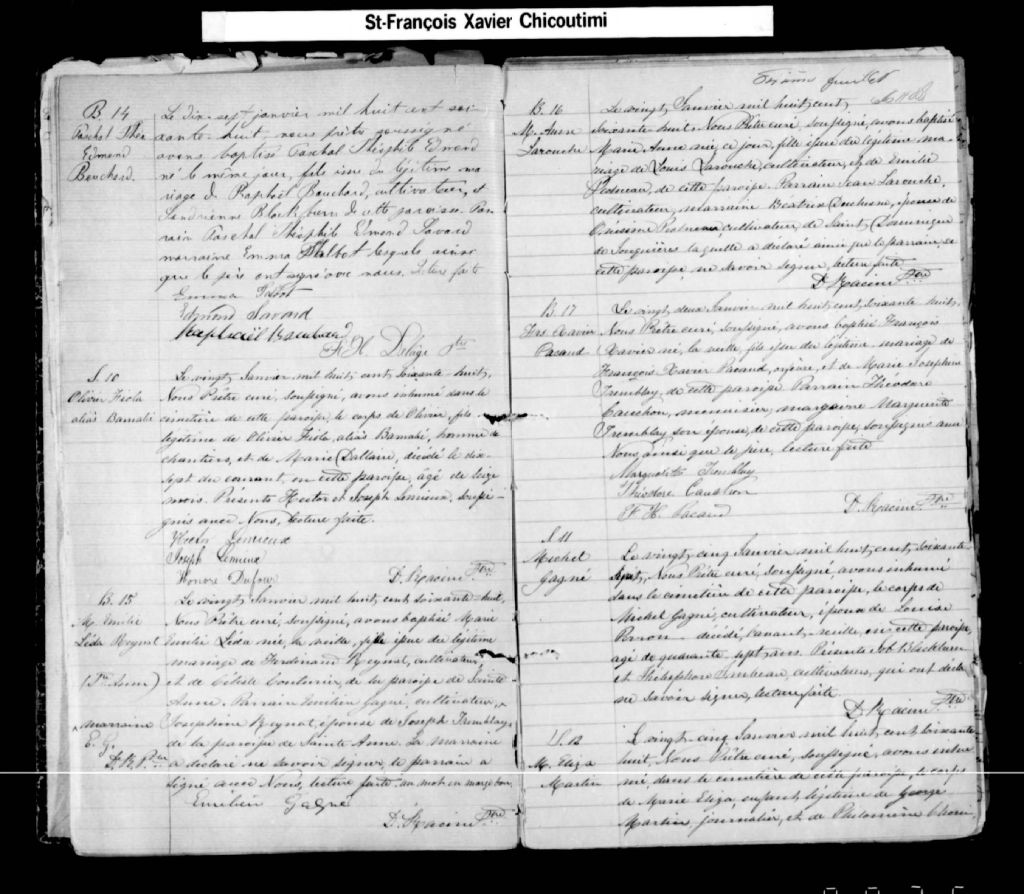 St-François Xavier Chicoutimi
B. 14
Paschal Théo
Edmond
Bouchard.
Le dix-sept janvier mil huit cent soi-
xante-huit, nous prêtre soussigné
avons baptisé Paschal Théophile Edmond
né le même jour, fils issu du légitime ma
riage de Raphaël Bouchard, cultivateur, et
Blackburn de cette paroisse. Par
rain Paschal Théophile Edmond Savard
marraine Emma Talbot lesquels ainsi
que le père ont signé avec nous. Lecture faite
Emma Talbot
Edmond Savard
Raphaël Bouchard
F. H. Delâge Ptre
S. 10
Olivier Fiola
alias Barnabé
Le vingt Janvier mil huit cent soixante huit,
Nous Prêtre curé, soussigné, avons inhumé dans le
cimetière de cette paroisse, le corps de Olivier, fils
légitime de Olivier Fiola, alias Barnabé, homme de
chantiers, et de Marie Dallaire, décédé le dix-
sept du courant, en cette paroisse, âgé de seize
mois. Présents Hector et Joseph Lemieux, soussi-
gnés avec Nous, lecture faite.
Lemieux
Joseph Lemieux
Honoré Dufour
D. Racine Ptre
B. 15
M. Emilie
Léda Raynal
(Ste Anne)
Le vingt Janvier mil huit cent soixante-huit,
Nous Prêtre curé, soussigné, avons baptisé Marie
Emilie Léda née, la veille, fille issue du légitime
mariage de Ferdinand Raynal, cultivateur,
et de Céleste Couturier, de la paroisse de Sainte
Anne. Parrain Emilien Gagné, cultivateur,
marraine
E. G.
D. R. Ptre
Joséphine Raynal, épouse de Joseph Tremblay,
de la paroisse de Sainte Anne. La marraine
a déclaré ne savoir signer, le parrain a
signé avec Nous, lecture faite, un mot en marge bon.
Emilien Gagné
D. Racine Ptre
feuillet
B. 16
M. Anne
Larouche
Le vingt Janvier mil huit cent
soixante-huit, Nous Prêtre curé, soussigné, avons baptisé
Marie Anne née, ce jour, fille issue du légitime ma-
riage de Louis Larouche, cultivateur, et de Emilie
de cette paroisse. Parrain Jean Larouche,
cultivateur, marraine Béatrix Duchesne, épouse de
Onésime cultivateur, de Saint Dominique
de Jonquières laquelle a déclaré ainsi que le parrain de
cette paroisse, ne savoir signer, lecture faite
D. Racine Ptre
B. 17
Frs Xavier
Pacaud
Le vingt deux Janvier mil huit cent soixante huit,
Nous Prêtre curé, soussigné, avons baptisé François
Xavier né, la veille, fils issu du légitime mariage de
François Xavier Pacaud, orfèvre, et de Marie Josephine
Tremblay, de cette paroisse. Parrain Théodore
Cauchon, menuisier, marraine Marguerite
Tremblay son épouse, de cette paroisse, soussignés avec
Nous, ainsi que le père, lecture faite
Marguerite Tremblay
Théodore Cauchon
F. X. Pacaud
D. Racine Ptre
S. 11
Michel
Gagné
Le vingt-cinq Janvier mil huit cent soixante-
huit, Nous Prêtre curé, soussigné, avons inhumé
dans le cimetière de cette paroisse, le corps de
Michel Gagné, cultivateur, époux de Louise
Perron décédé, l'avant-veille, en cette paroisse,
âgé de quarante sept ans. Présents Job Blackburn
et Thélesphore Simbeau, cultivateurs, qui ont déclaré
ne savoir signer, lecture faite.
D. Racine Ptre
S. 12
M. Eliza
Martin
Le vingt-cinq Janvier mil huit cent soixante
huit, Nous Prêtre curé, soussigné, avons inhu
mé, dans le cimetière de cette paroisse, le corps
de Marie Eliza, enfant légitime de George
Martin, journalier, et de Philomène